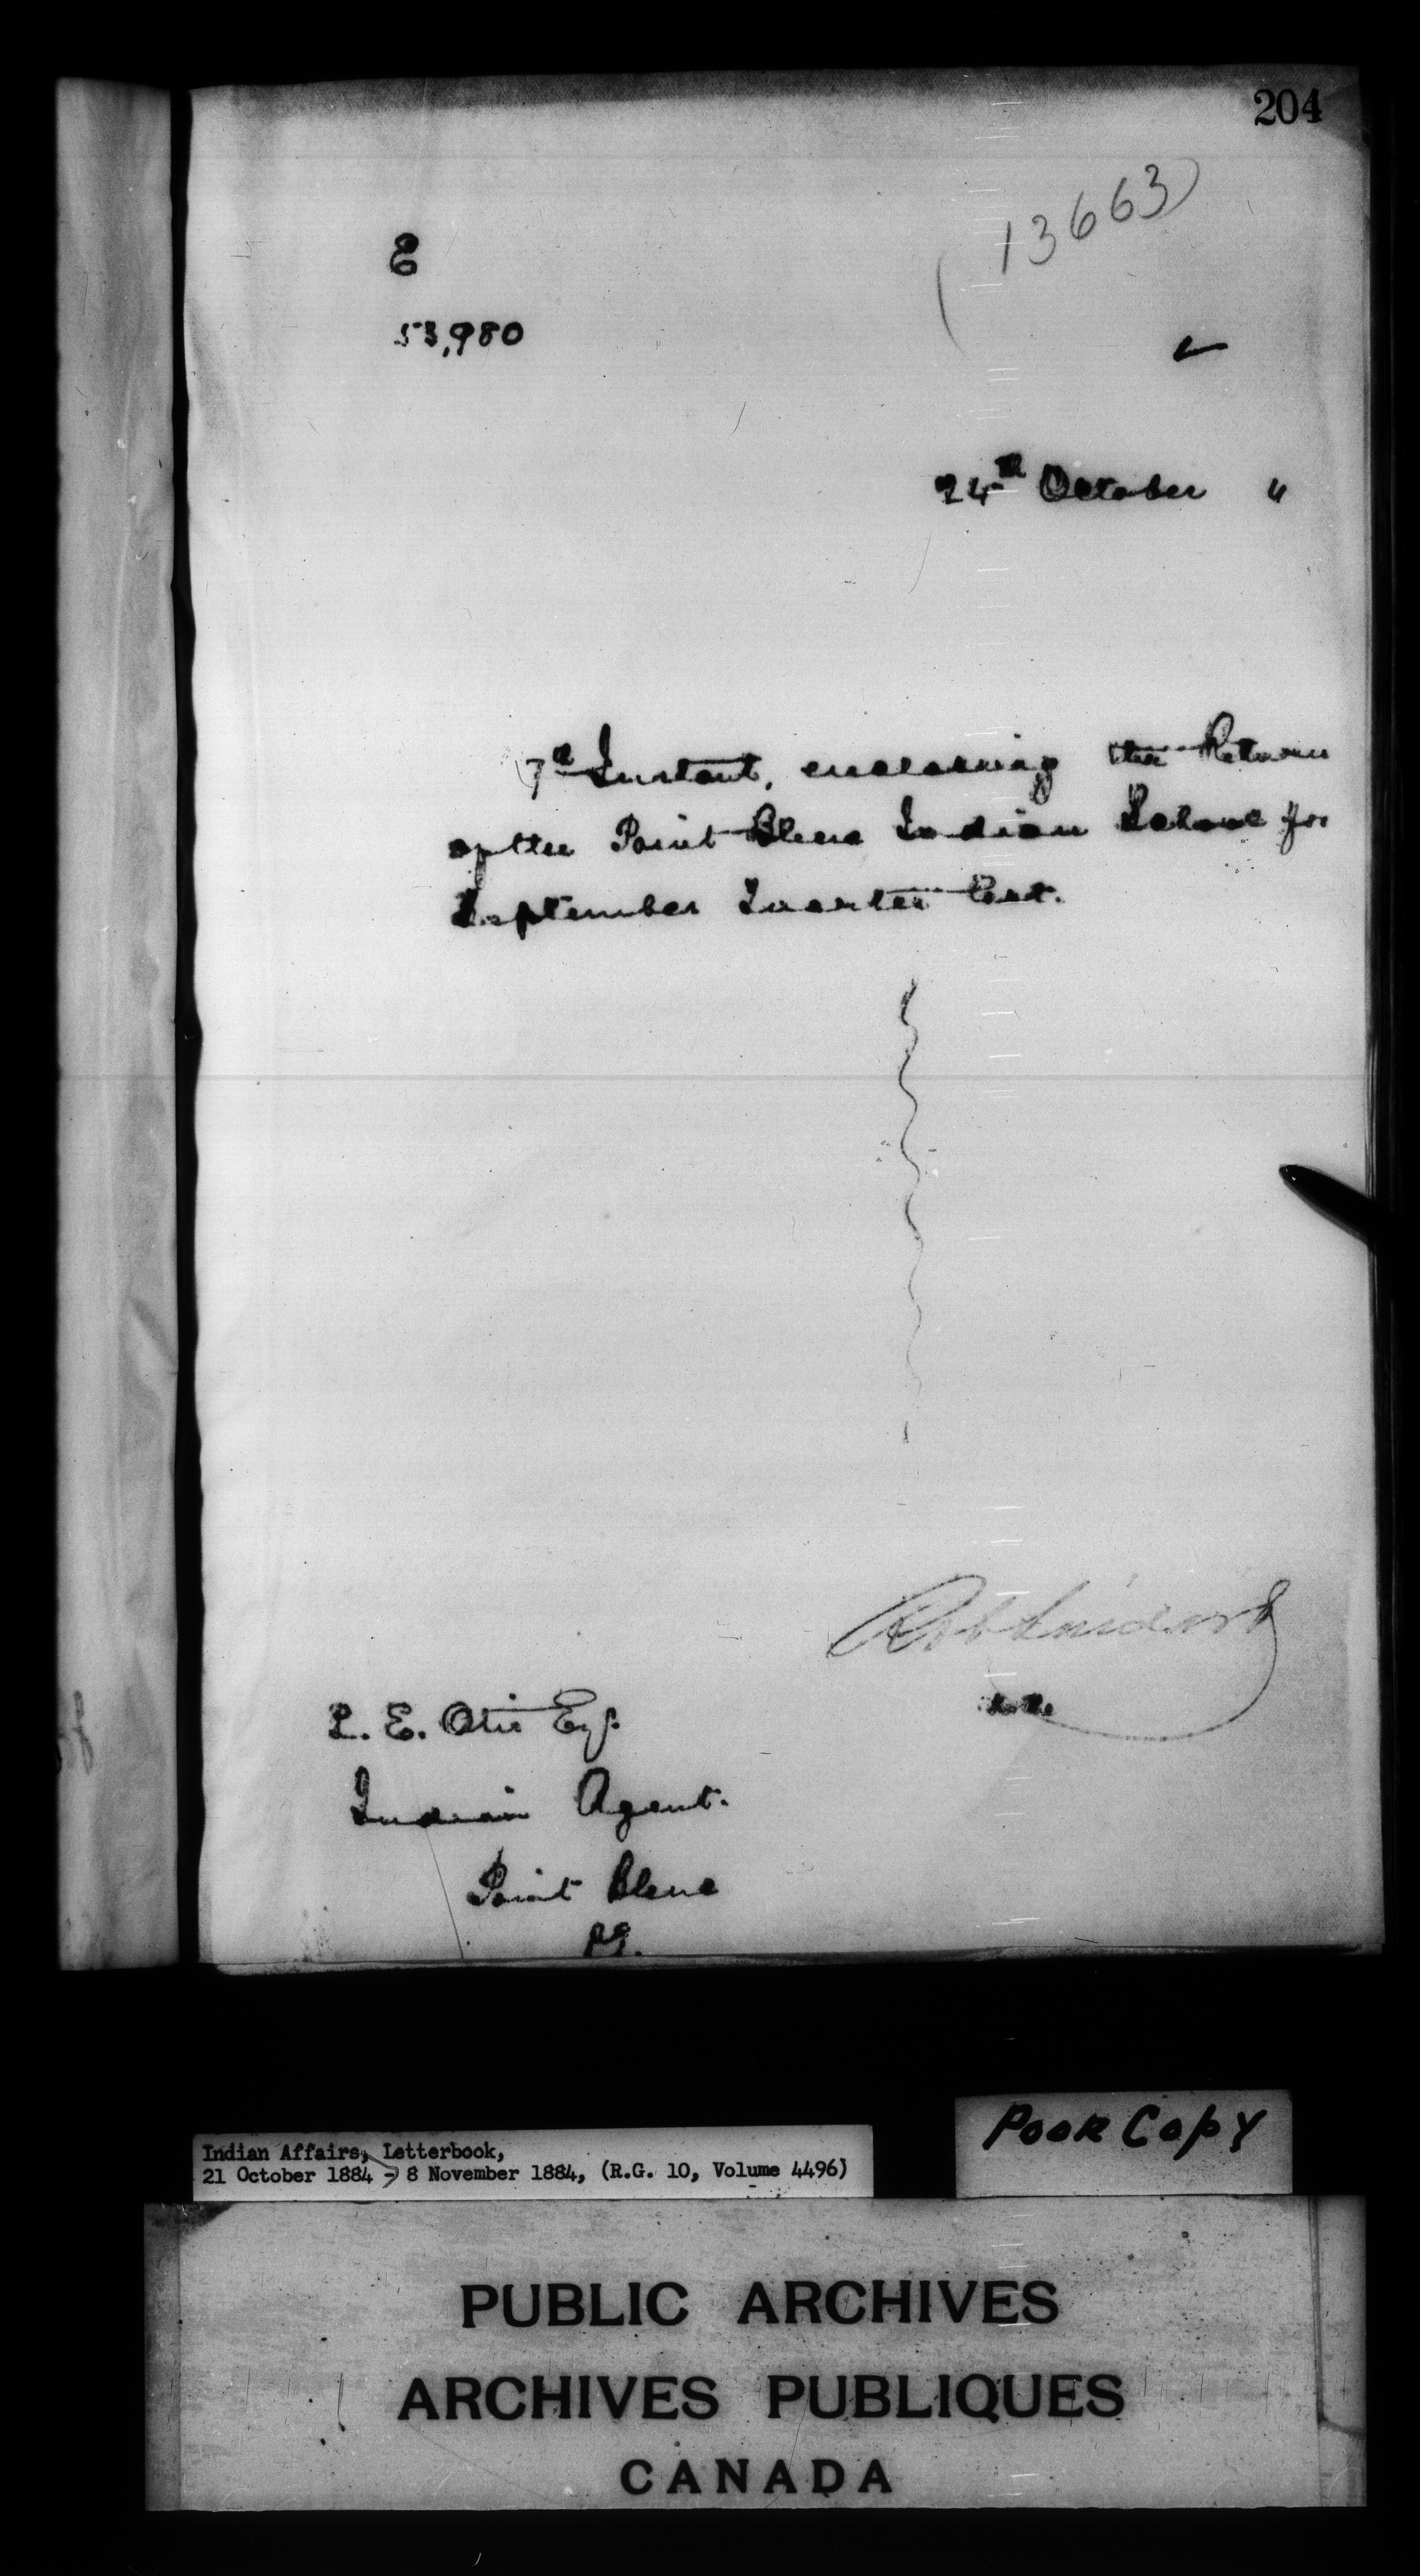 204
(13663)
E
53,980
24th October "
7th Instant, enclosing the Return
of the Point Bleue Indian School for
September Quarter last.
L. E. Otis Esq.
Indian Agent.
Point Bleue
P.Q.
Poor Copy
Indian Affairs, Letterbook,
21 October 1884 - 8 November 1884, (R.G. 10, Volume 4496)
PUBLIC ARCHIVES
ARCHIVES PUBLIQUES
CANADA